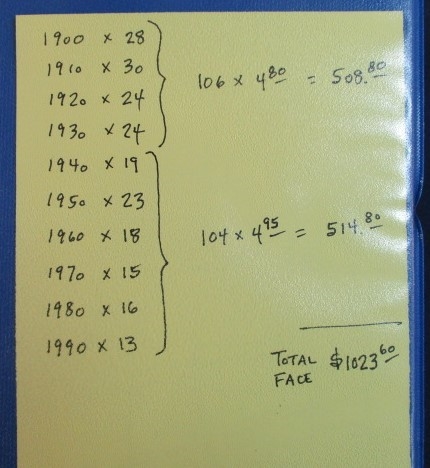 1900 x 28
1910 x 30
1920 x 24
1930 x 24
106 x 4 80 = 508.80
1940 x 19
1950 x 23
1960 x 18
1970 x 15
1980 x 16
1990 x 13
104 x 4 95 = 514.80
TOTAL FACE $1023 60